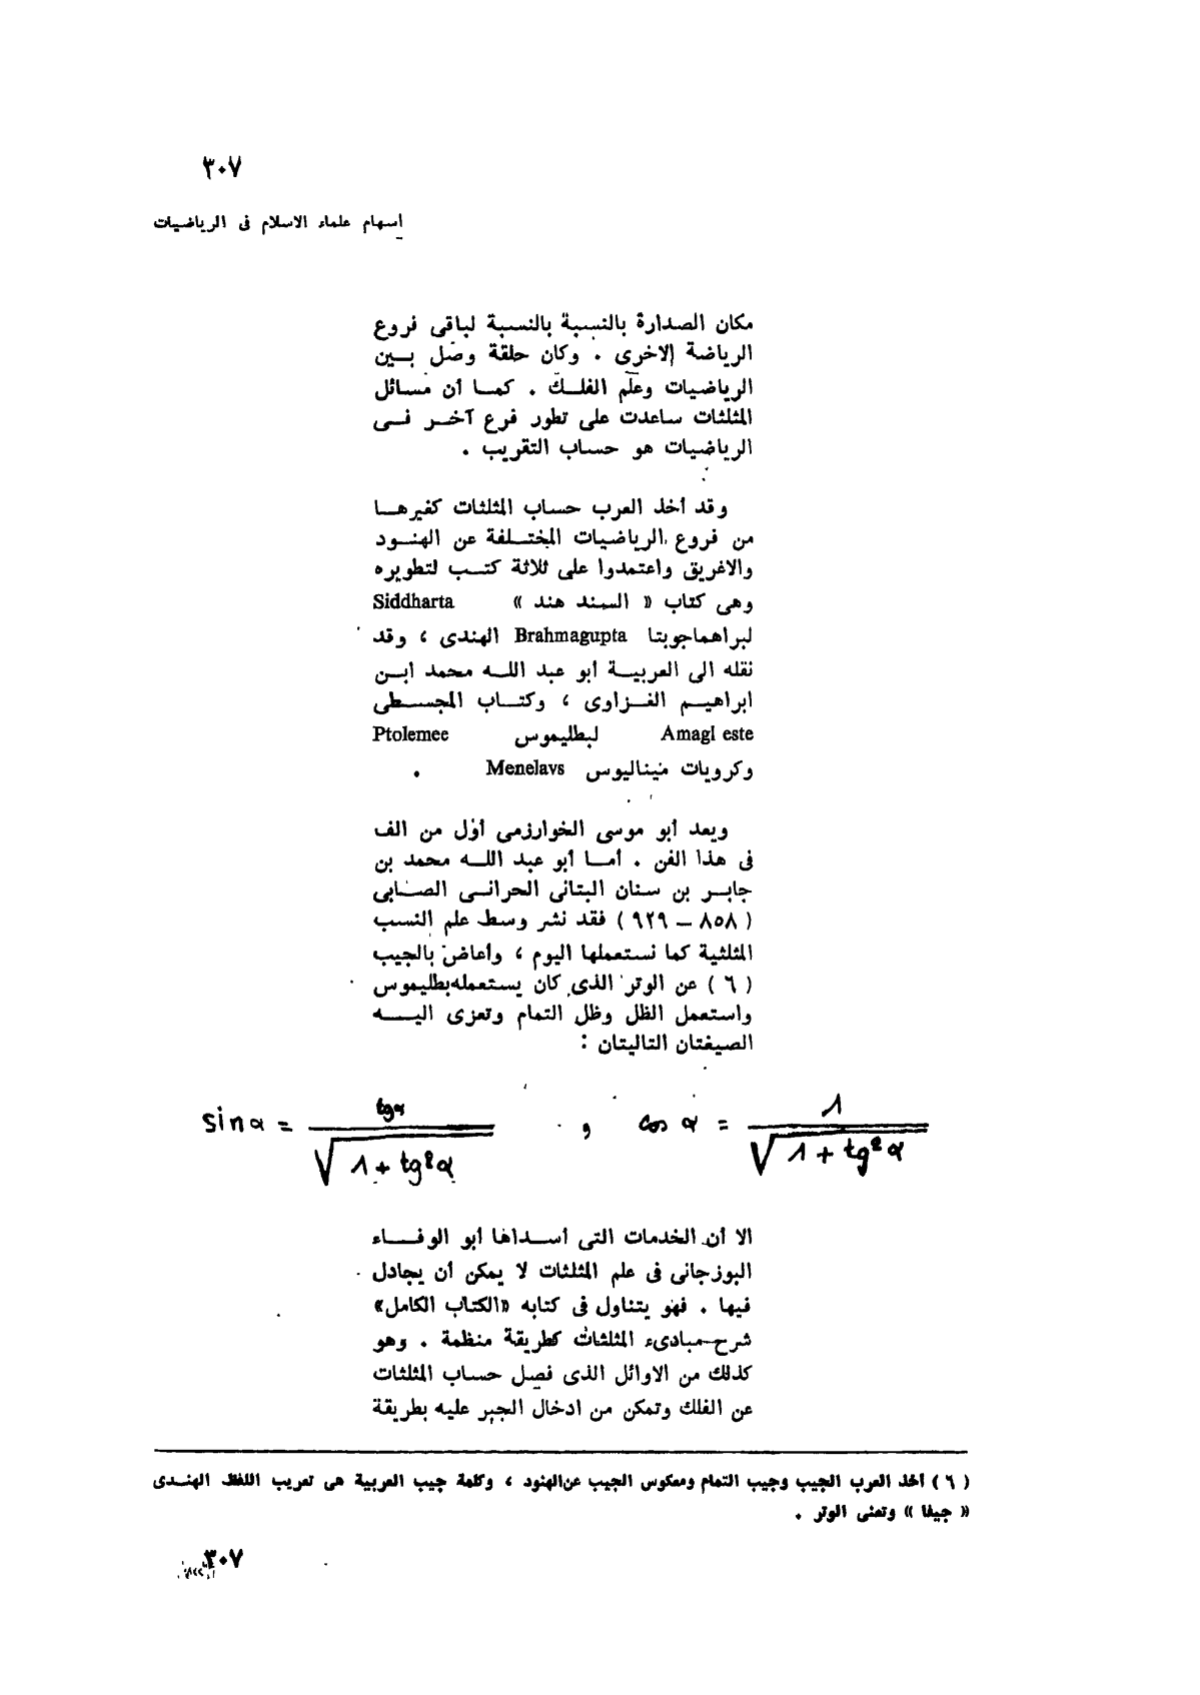 ٣٠٧
إسهام علماء الاسلام فى الرياضيات
مكان الصدارة بالنسبة بالنسبة لباقى فروع
الرياضة الاخرى . وكان حلقة وصل بين
الرياضيات وعلم الفلك . كما أن مسائل
المثلثات ساعدت على تطور فرع آخر فى
الرياضيات هو حساب التقريب .
وقد أخذ العرب حساب المثلثات كغيرها
من فروع الرياضيات المختلفة عن الهنود
والاغريق واعتمدوا على ثلاثة كتب لتطويره
وهى كتاب « السند هند » Siddharta
لبراهماجوبتا Brahmagupta الهندى ، وقد
نقله الى العربية أبو عبد الله محمد ابن
ابراهيم الفزاوى ، وكتاب المجسطى
Amagl este لبطليموس Ptolemee
وكرويات مينياليوس Menelavs .
ويعد أبو موسى الخوارزمى أول من الف
فى هذا الفن . أما أبو عبد الله محمد بن
جابر بن سنان البتانى الحرانى الصابى
( ٨٥٨ – ٩٢٩ ) فقد نشر وسط علم النسب
المثلثية كما نستعملها اليوم ، وأعاض بالجيب
( ٦ ) عن الوتر الذى كان يستعمله بطليموس
واستعمل الظل وظل التمام وتعزى اليه
الصيغتان التاليتان :
sin α = tgα / √(1 + tg²α) , cos α = 1 / √(1 + tg²α)
الا أن الخدمات التى أسداها أبو الوفاء
البوزجانى فى علم المثلثات لا يمكن أن يجادل
فيها . فهو يتناول فى كتابه «الكتاب الكامل»
شرح مبادىء المثلثات كطريقة منظمة . وهو
كذلك من الاوائل الذى فصل حساب المثلثات
عن الفلك وتمكن من ادخال الجبر عليه بطريقة
( ٦ ) أخذ العرب الجيب وجيب التمام ومعكوس الجيب عن الهنود ، وكلمة جيب العربية هى تعريب اللفظ الهندى
« جيفا » وتعنى الوتر .
٣٠٧